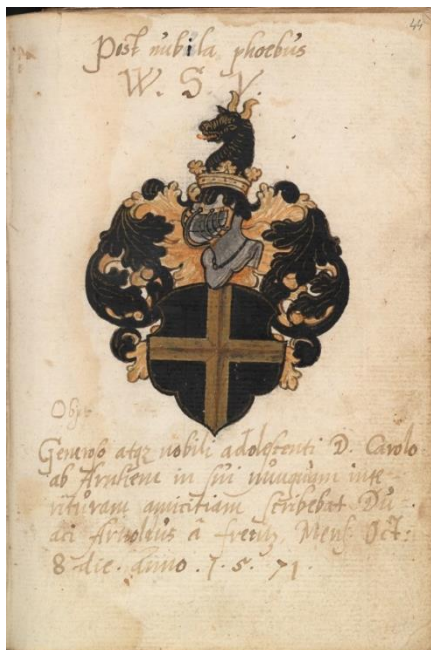 44
Post nubila phoebus
W. S. V.
Obijt
Generoso atqz nobili adolescenti D. Carolo
ab Arnhem in sui nunquam inte
rituram amicitiam scribebat Du
aci Arnoldus à frentz, Mens. Oct:
8 die. anno . 1 . 5 . 71 .